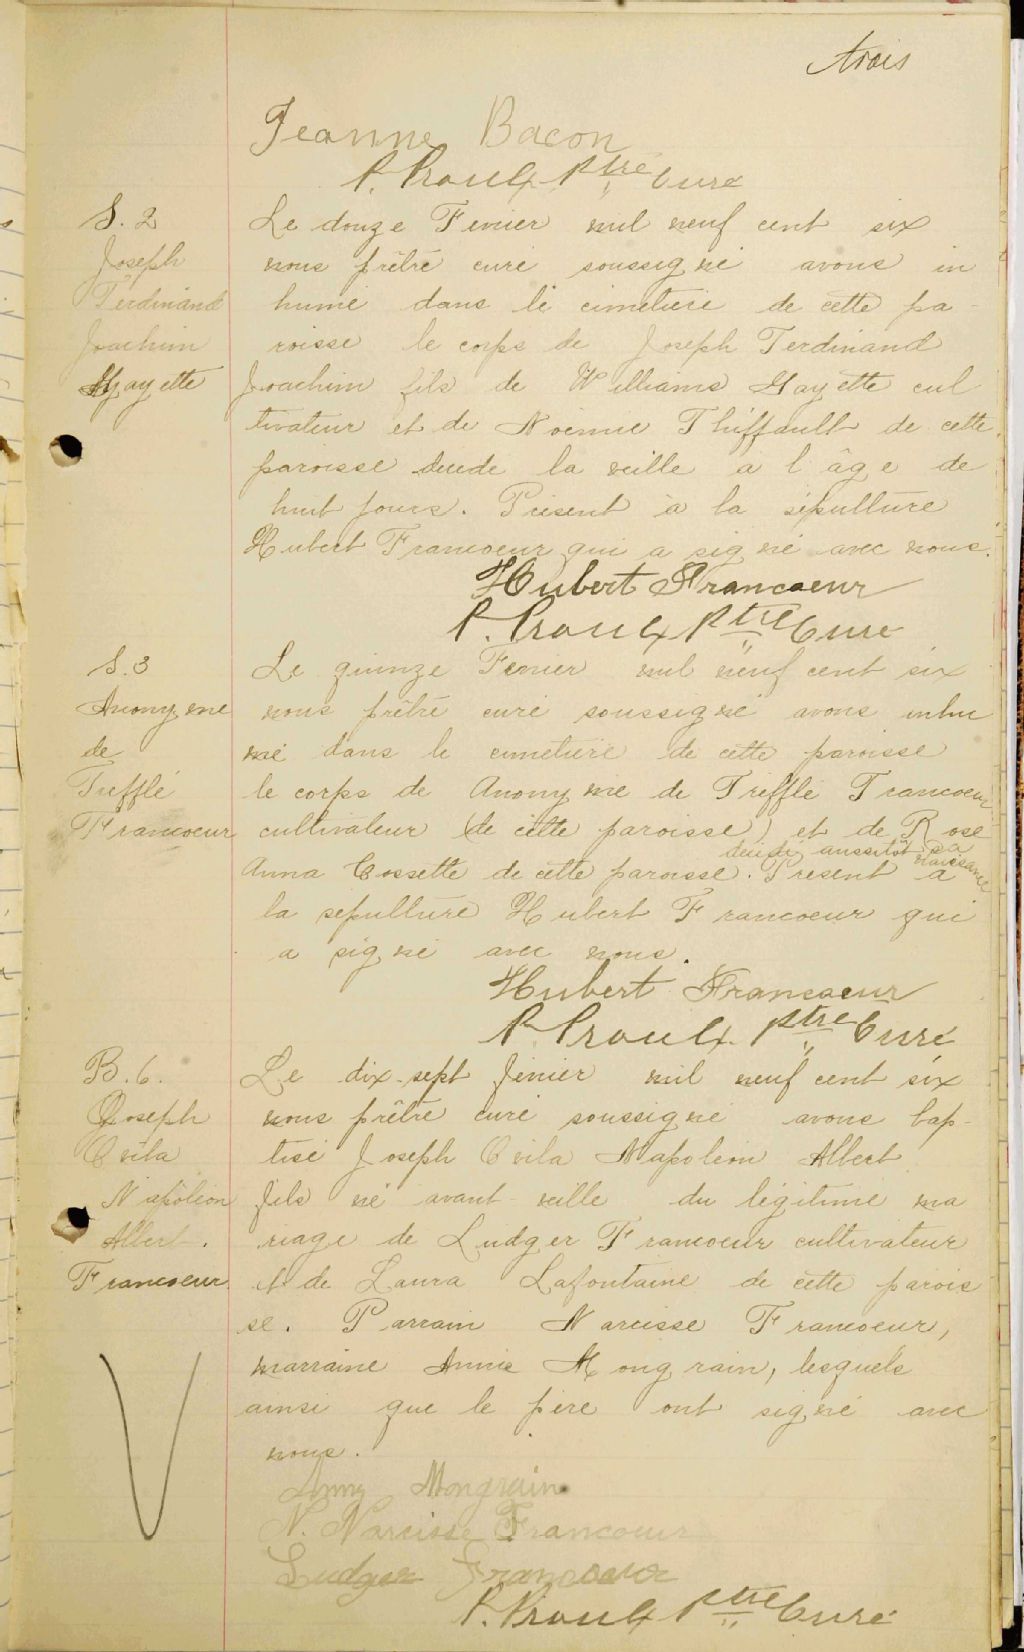 trois
Jeanne Bacon
P. Proulx Ptre Curé
S. 2
Joseph
Ferdinand
Joachim
Gayette
Le douze Fevrier mil neuf cent six
nous prêtre curé soussigné avons in
humé dans le cimetière de cette pa-
roisse le corps de Joseph Ferdinand
Joachim fils de Williams Gayette cul
tivateur et de Noémie Thiffault de cette
paroisse décédé la veille à l'âge de
huit jours. Présent à la sépulture
Hubert Francoeur qui a signé avec nous.
Hubert Francoeur
P. Proulx Ptre Curé
S. 3
Anonyme
de
Trefflé
Francoeur
Le quinze Fevrier mil neuf cent six
nous prêtre curé soussigné avons inhu
mé dans le cimetière de cette paroisse
le corps de Anonyme de Trefflé Francoeur
cultivateur (de cette paroisse) et de Rose
décédé aussitôt sa naissance
Anna Cossette de cette paroisse. Présent à
la sepulture Hubert Francoeur qui
a signé avec nous.
Hubert Francoeur
P. Proulx Ptre Curé
B. 6.
Joseph
Ovila
Napoléon
Albert.
Francoeur
Le dix-sept février mil neuf cent six
nous prêtre curé soussigné avons bap-
tisé Joseph Ovila Napoléon Albert
fils né avant-veille du légitime ma
riage de Ludger Francoeur cultivateur
et de Laura Lafontaine de cette parois
se. Parrain Narcisse Francoeur,
marraine Annie Mongrain, lesquels
ainsi que le père ont signé avec
nous.
Anny Mongrain
N. Narcisse Francoeur
Ludger Francoeur
P. Proulx Ptre Curé